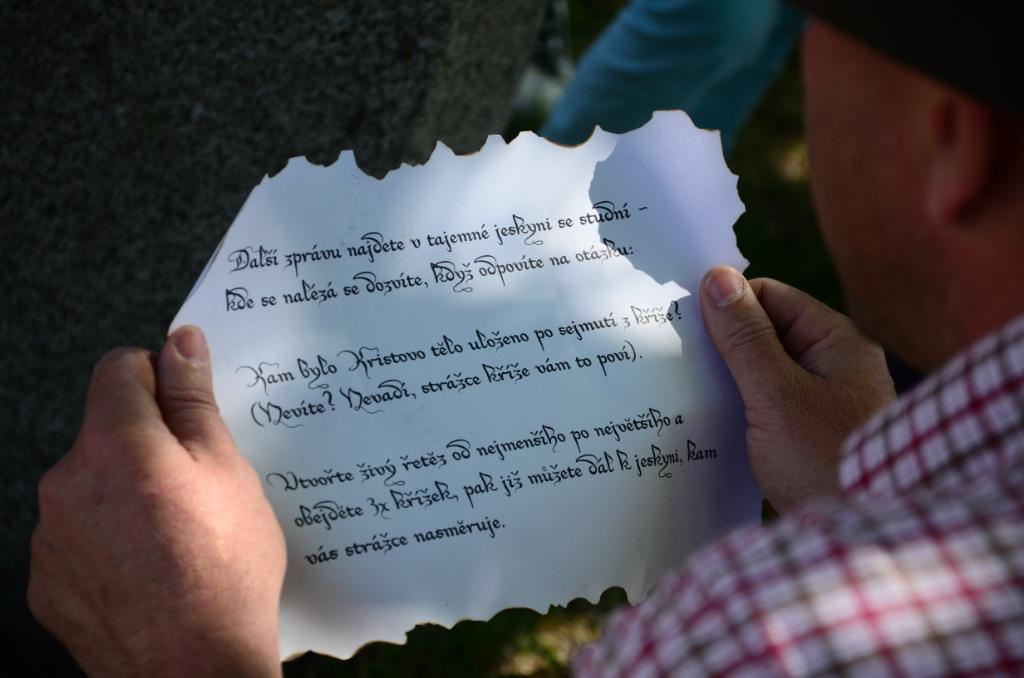 Další zprávu najdete v tajemné jeskyni se studní -
kde se nalézá se dozvíte, když odpovíte na otázku:
Kam bylo Kristovo tělo uloženo po sejmutí z kříže?
(Nevíte? Nevadí, strážce kříže vám to poví).
Utvořte živý řetěz od nejmenšího po největšího a
obejděte 3x křížek, pak již můžete dál k jeskyni, kam
vás strážce nasměruje.